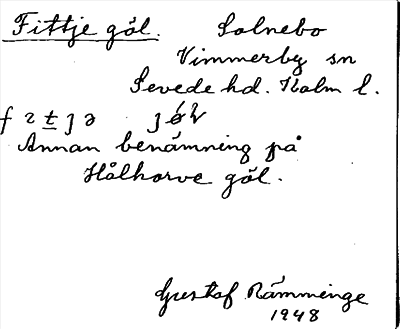 Fittje göl. Solnebo
Vimmerby sn
Sevede hd. Kalm l.
Annan benämning på
Hålhorve göl.
Gustaf Rämminge
1948